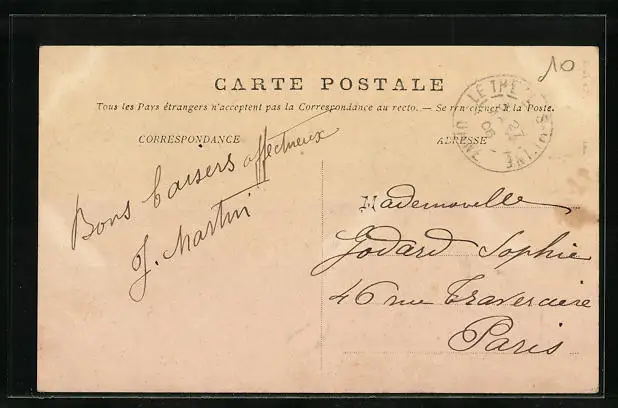 10
CARTE POSTALE
Tous les Pays étrangers n'acceptent pas la Correspondance au recto. — Se renseigner à la Poste.
CORRESPONDANCE
ADRESSE
Bons baisers affectueux
J. Martin
Mademoiselle
Godard Sophie
46 rue Traversière
Paris